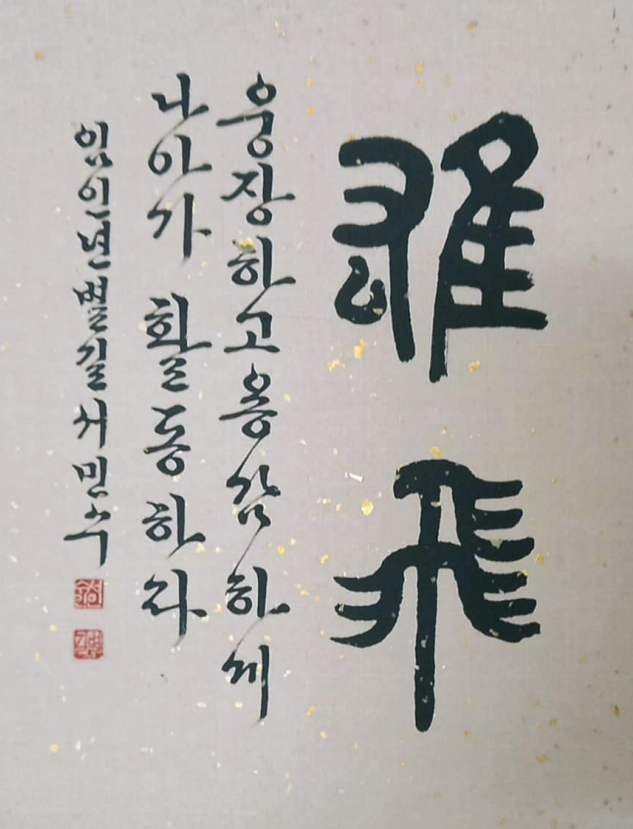 雄飛
웅장하고 용감하게
나아가 활동하라
임인년 별길 서민수